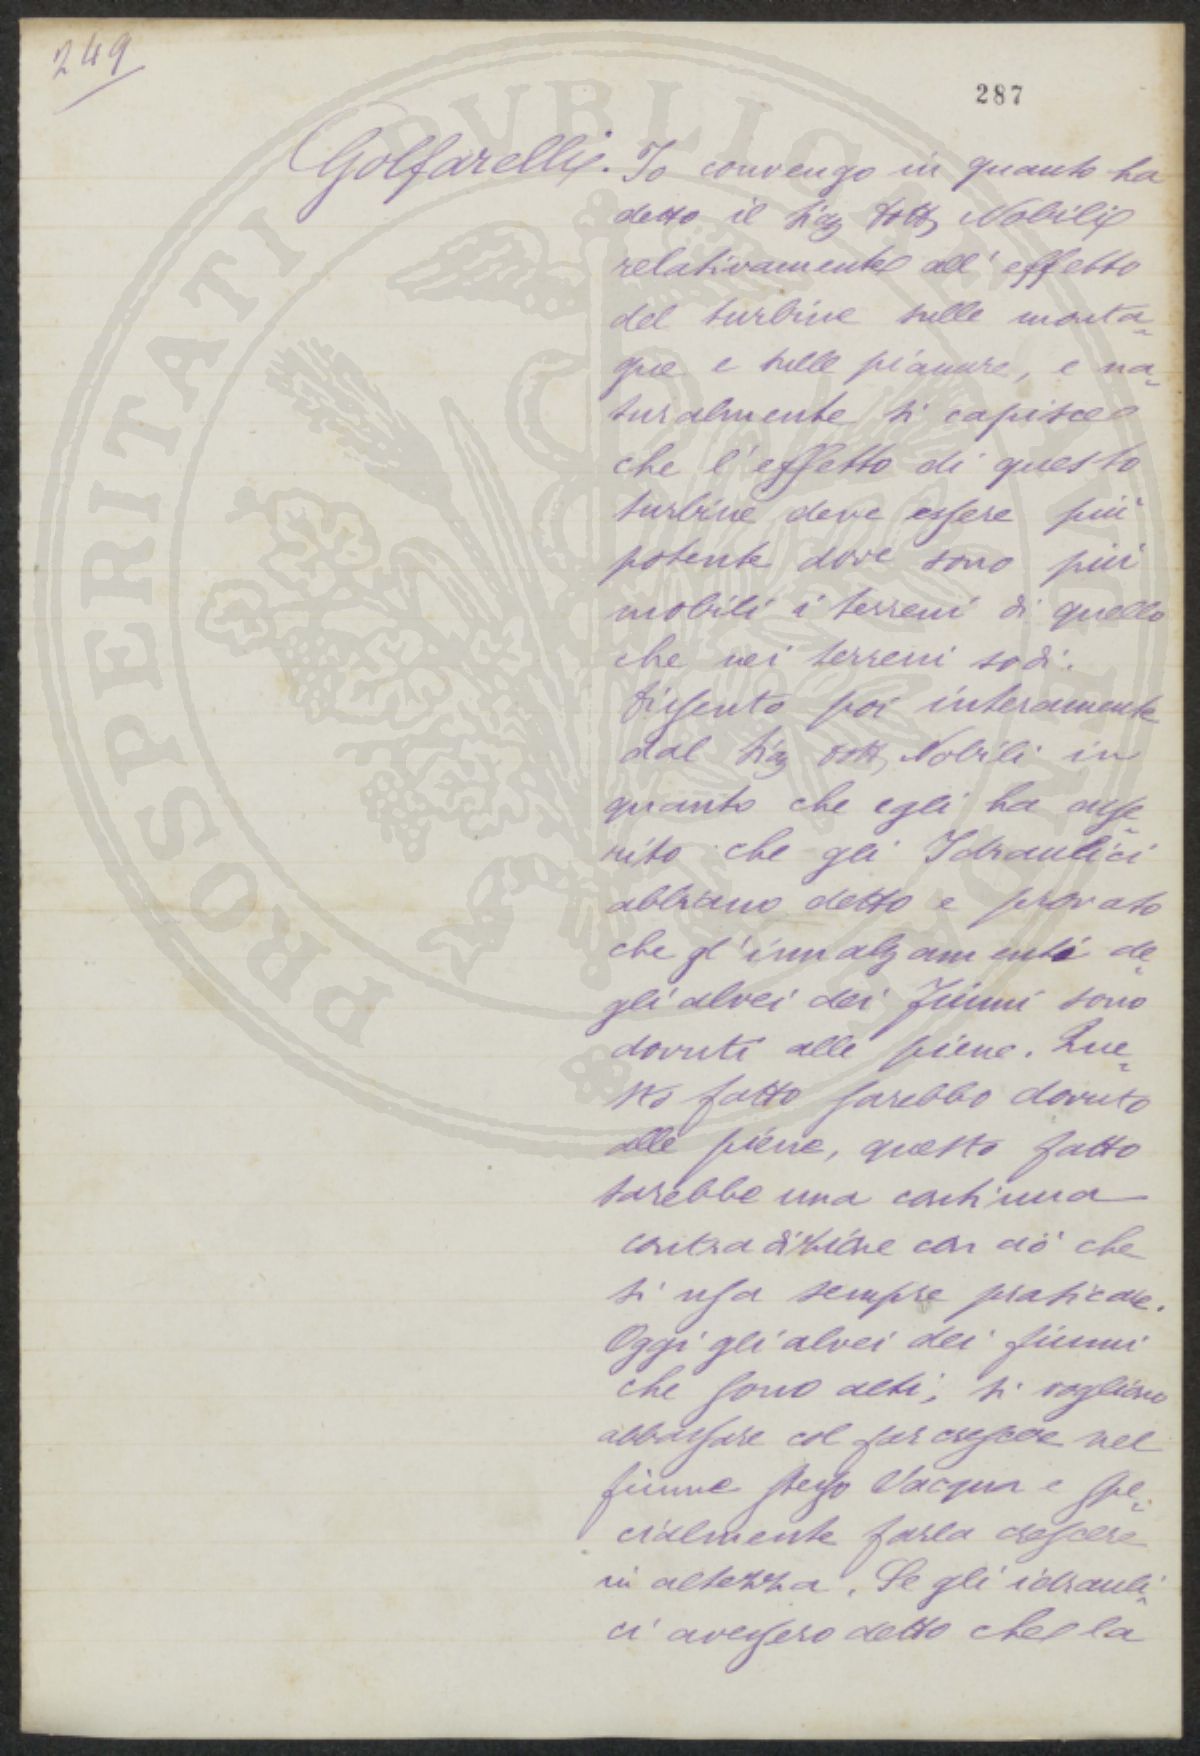 249
287
Golfarelli. Io convengo in quanto ha
detto il Sig Dott Nobili
relativamente all' effetto
del turbine sulle monta-
gne e sulle pianure, e na-
turalmente si capisce
che l'effetto di questo
turbine deve essere più
potente dove sono più
mobili i terreni di quello
che nei terreni sodi.
Dissento poi interamente
dal Sig Dott Nobili in
quanto che egli ha asse-
rito che gli Idraulici
abbiano detto e provato
che gl'innalzamenti de-
gli alvei dei fiumi sono
dovuti alle piene. Que-
sto fatto sarebbo dovuto
alle piene, questo fatto
sarebbe una continua
contradizione con ciò che
si usa sempre praticare.
Oggi gli alvei dei fiumi
che sono alti, si vogliono
abbassare col far crescere nel
fiume stesso l'acqua e spe-
cialmente farla crescere
in altezza. Se gli idrauli-
ci avessero detto che la
PROSPERITATI PVBLICAE